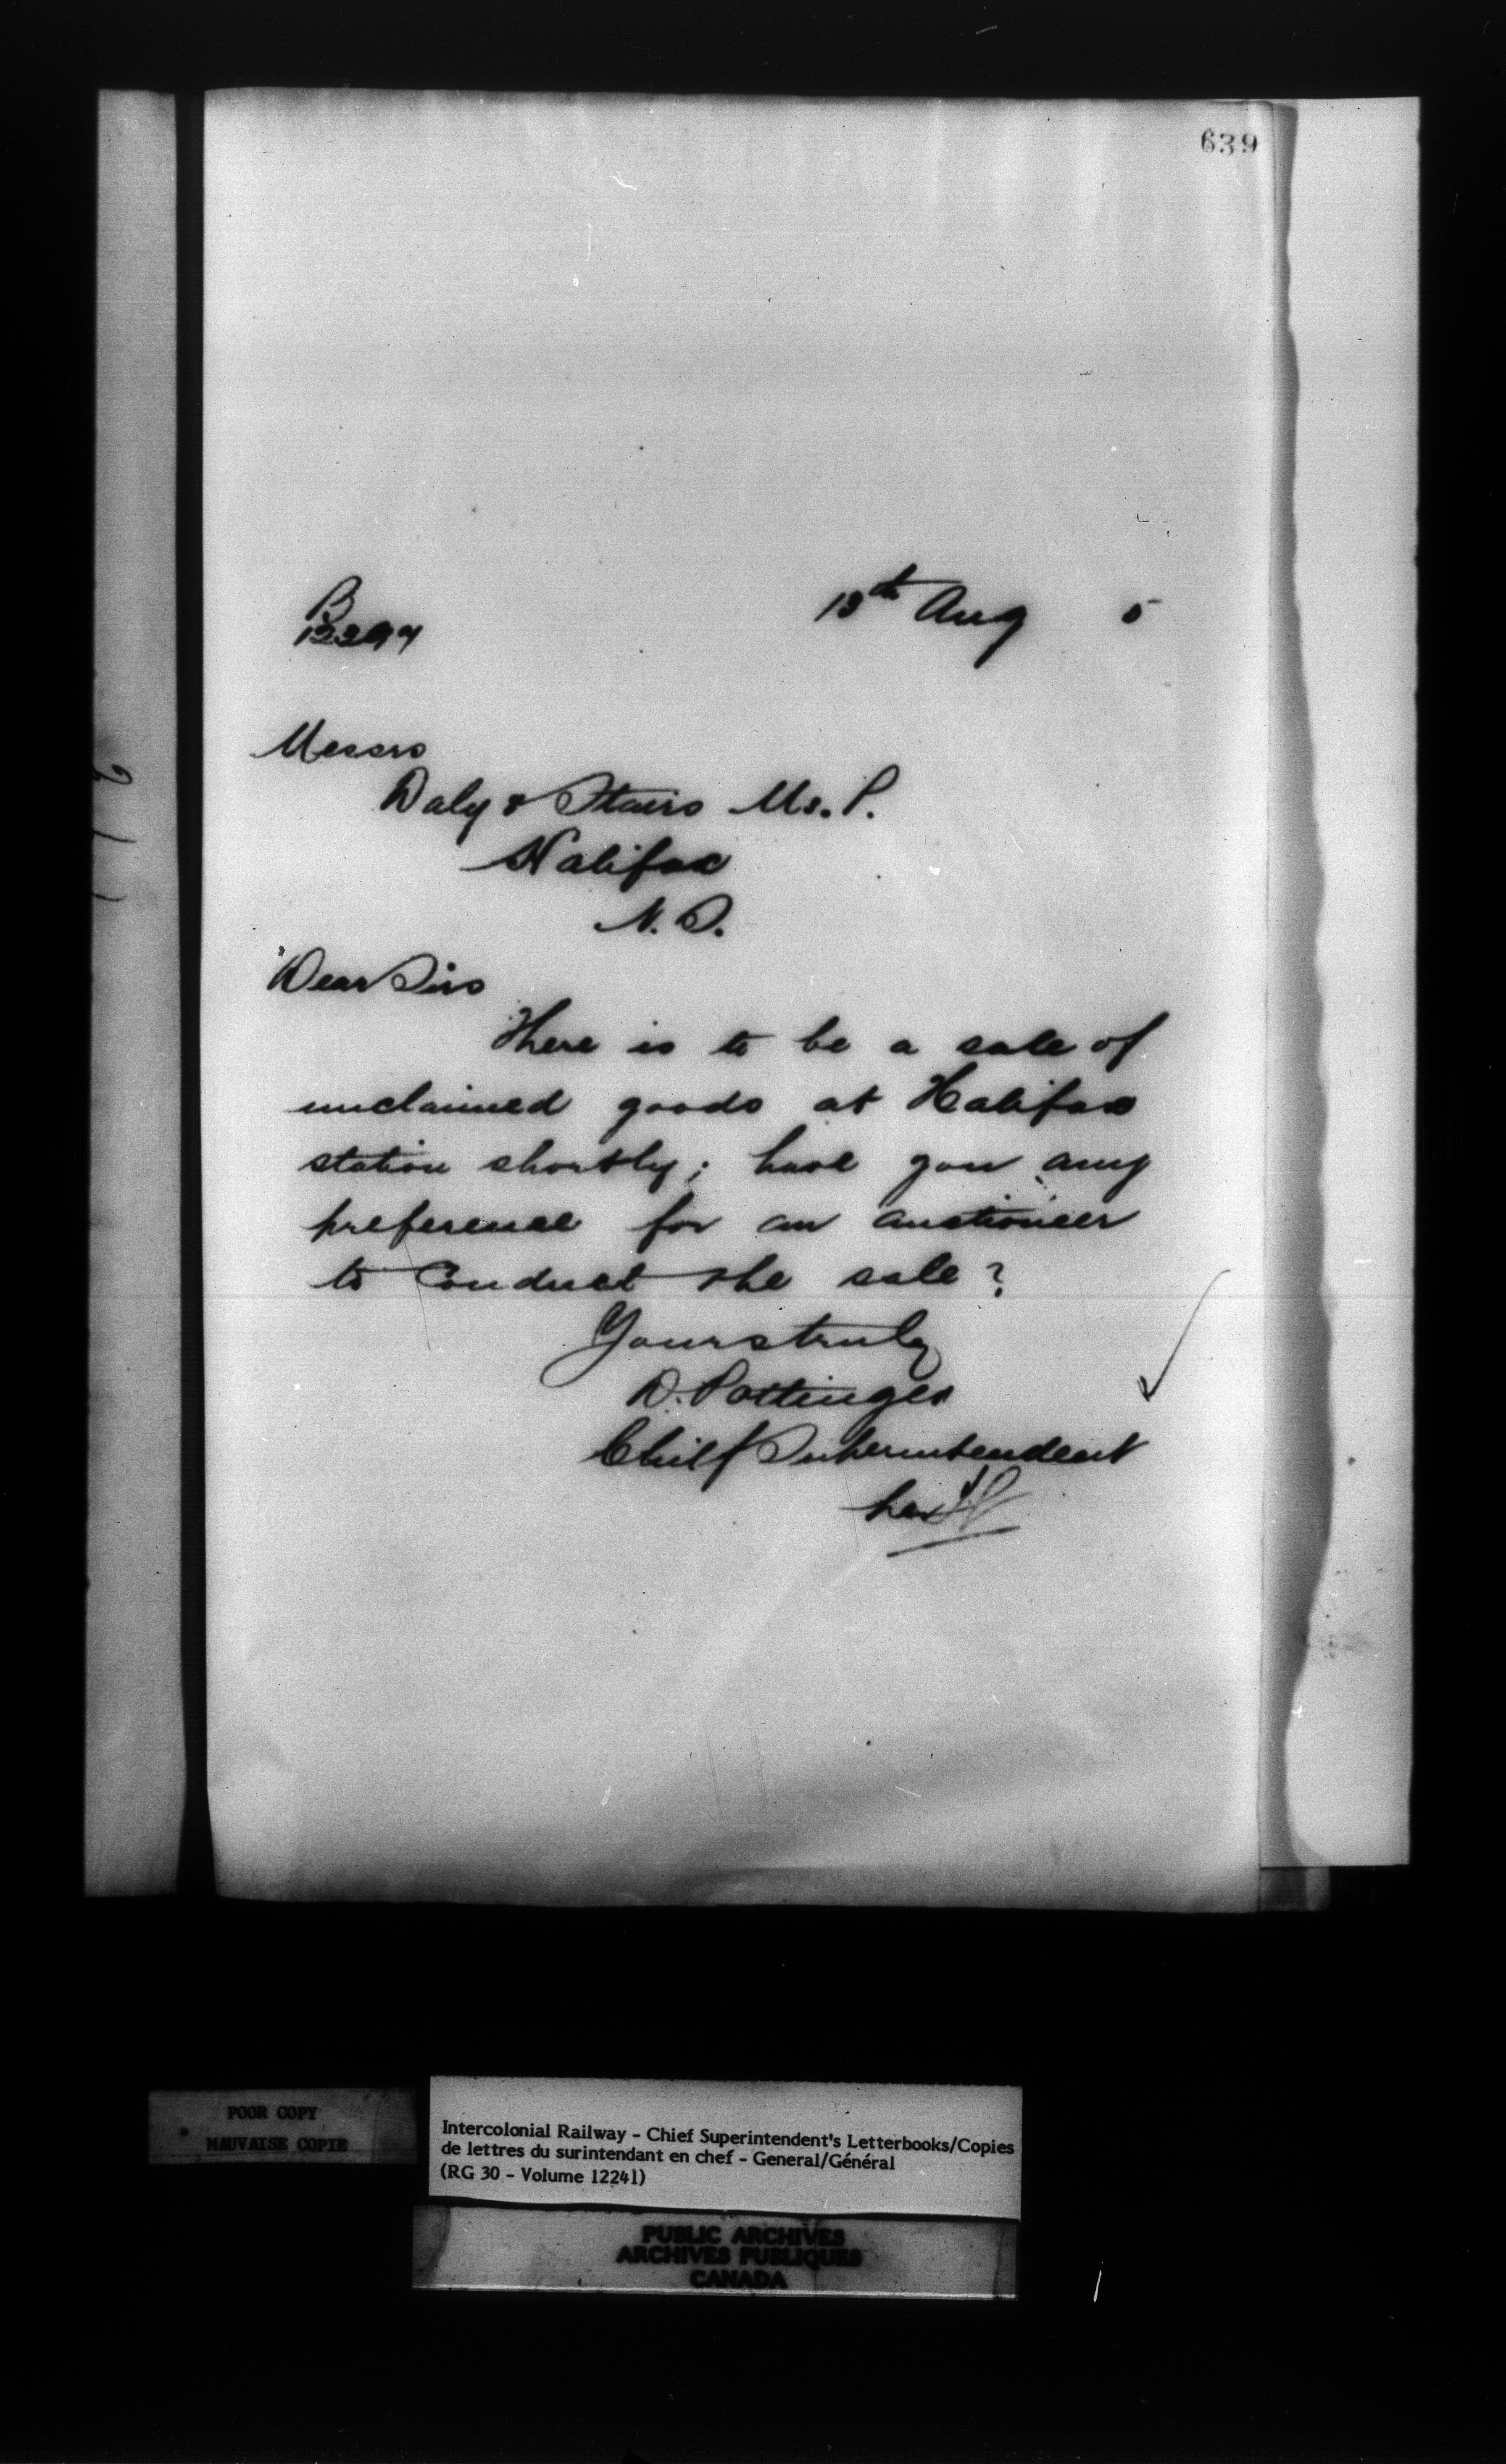 639
B
12297
13th Aug 5
Messrs
Daly & Stairs Ms. P.
Halifax
N. S.
Dear Sirs
There is to be a sale of
unclaimed goods at Halifax
station shortly; have you any
preference for an auctioneer
to Conduct the sale?
Yours truly
D. Pottinger
Chief Superintendent
per
POOR COPY
MAUVAISE COPIE
Intercolonial Railway - Chief Superintendent's Letterbooks/Copies
de lettres du surintendant en chef - General/Général
(RG 30 - Volume 12241)
PUBLIC ARCHIVES
ARCHIVES PUBLIQUES
CANADA